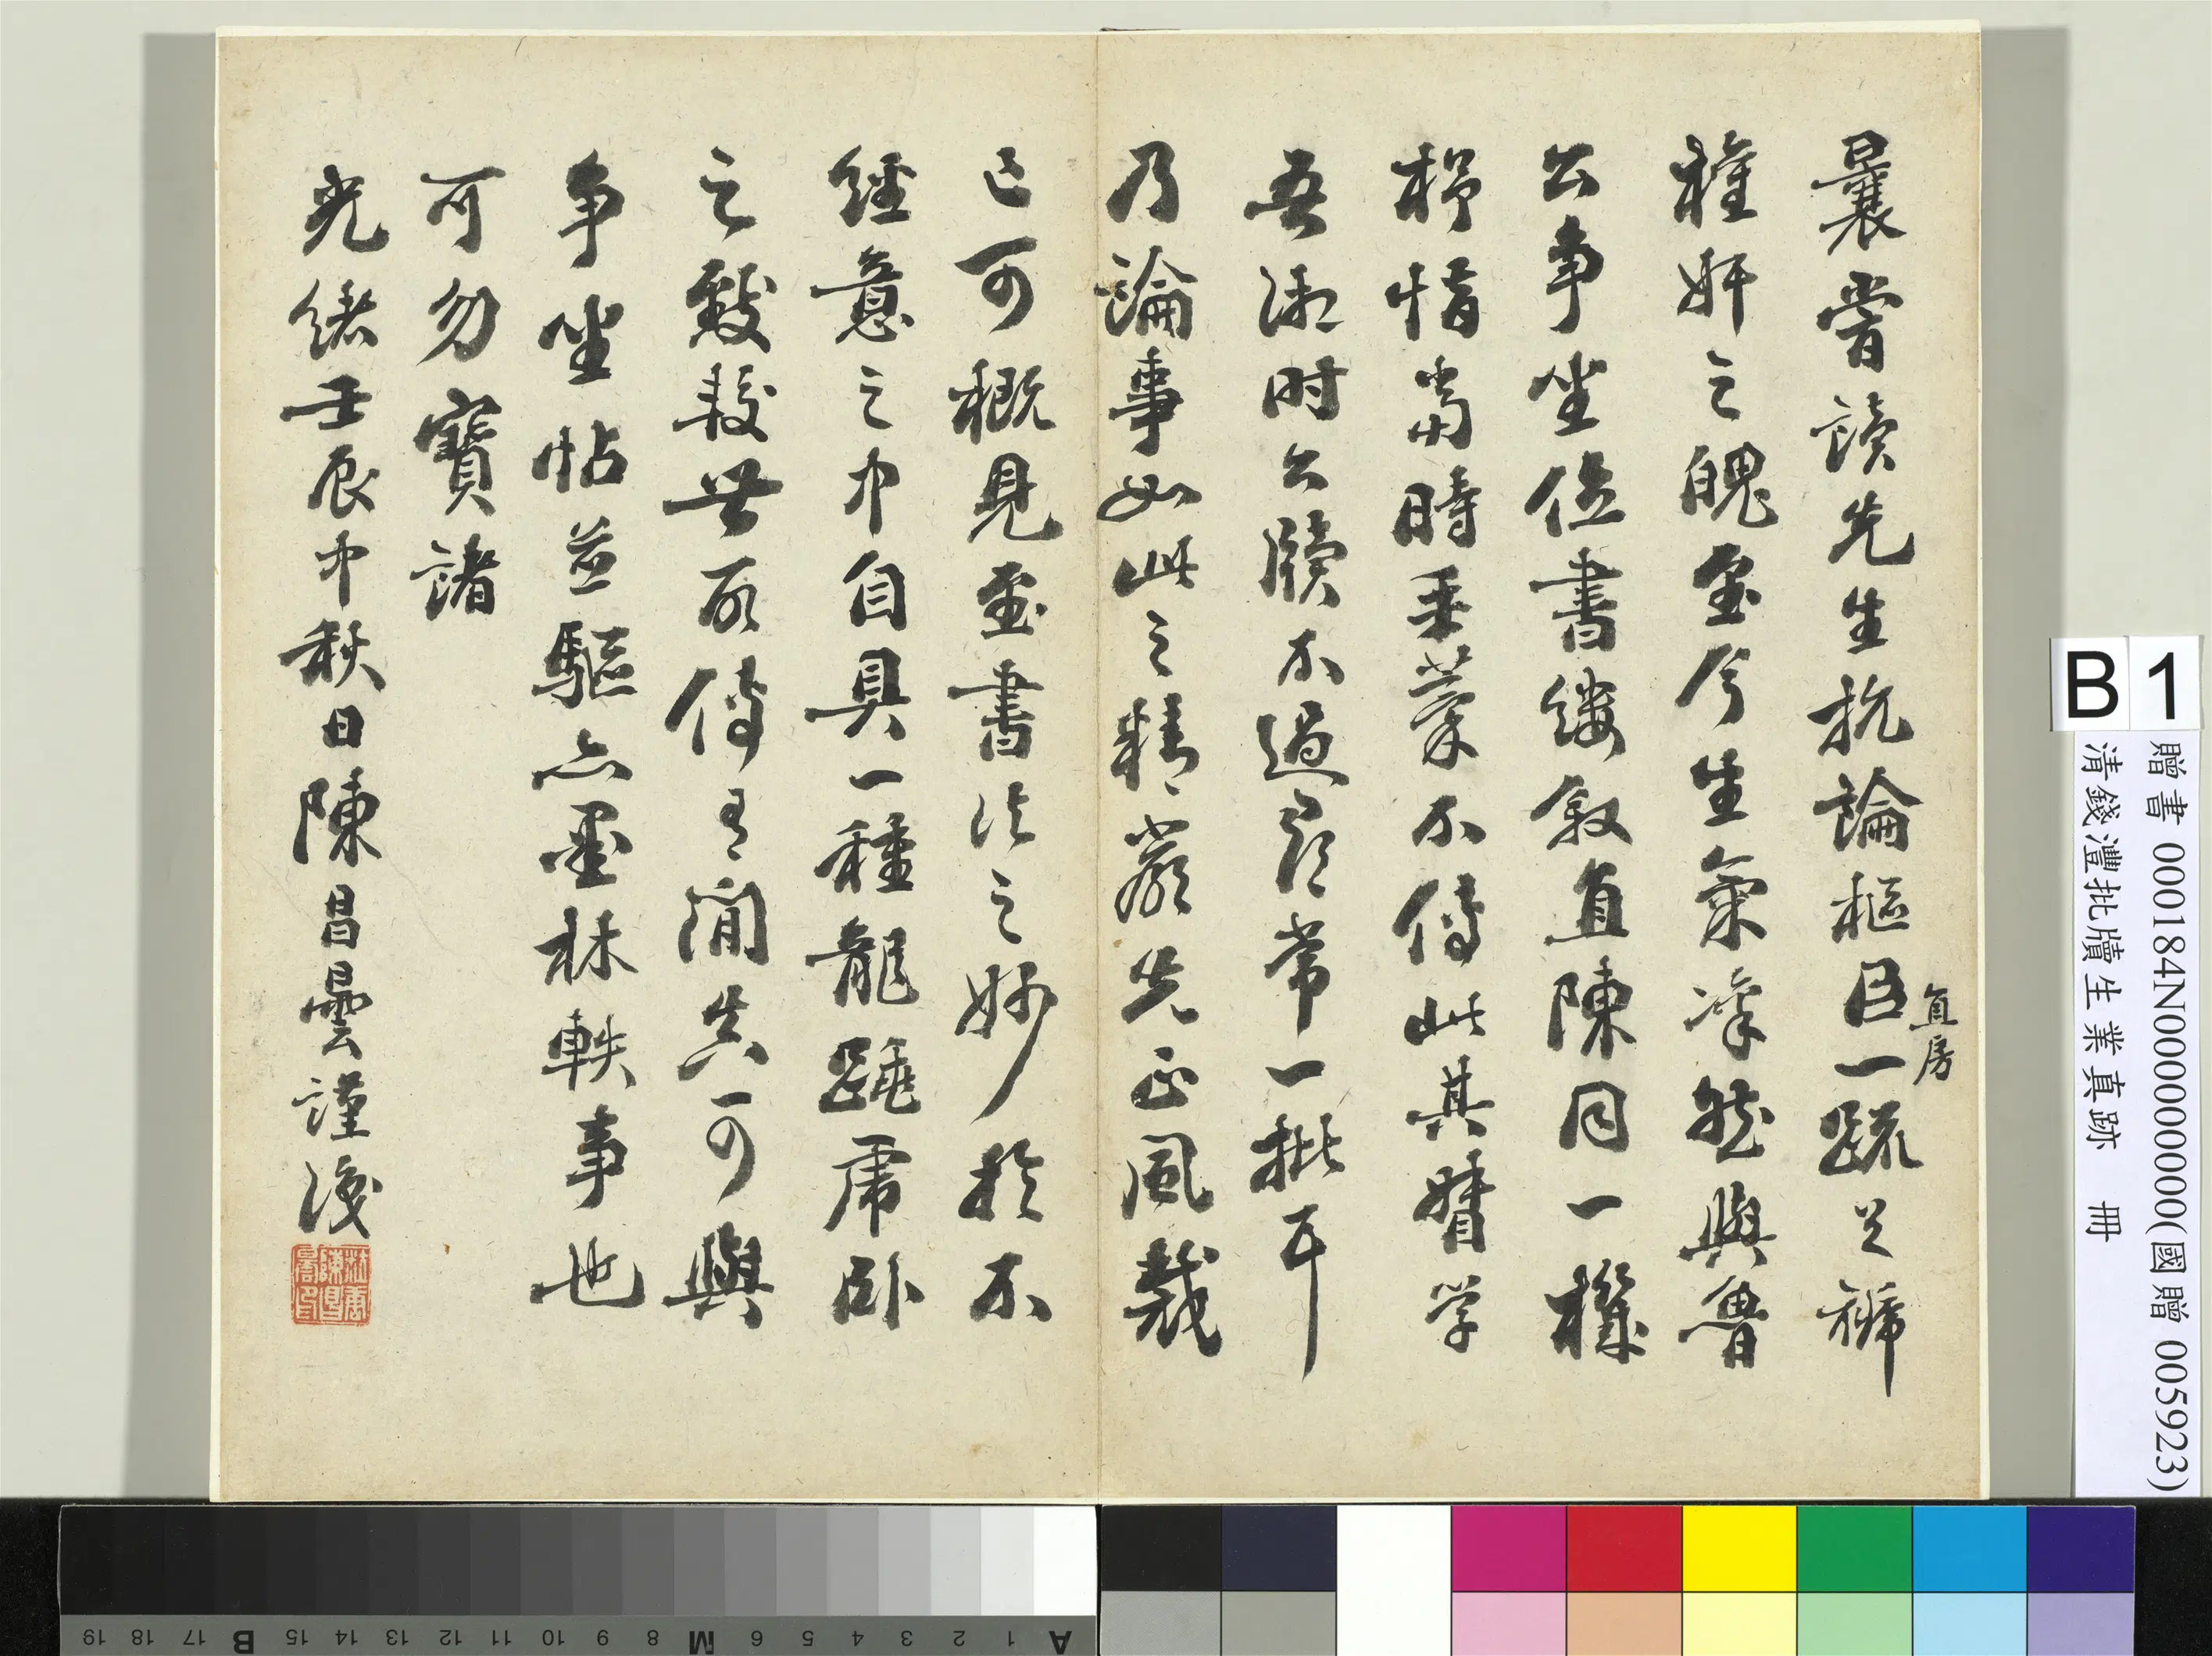 曩嘗讀先生抗論樞臣直房一疏足褫
權奸之魄至今生氣凜然與魯
公爭坐位書縷敘直陳同一機
杼惜當時奏藁不傳此其督學
吾湘時公牘不過尋常一批耳
乃論事如此之精嚴先正風裁
已可概見至書法之妙於不
經意之中自具一種龍虎卧
之所可與
爭坐帖並驅亦墨林軼事也
可勿寶諸
光緒壬辰中秋日陳昌曇謹識
B1
贈書 000184N000000000(國贈 005923)
清錢灃批牘生業真跡 冊
A 1 2 3 4 5 6 M 8 9 10 11 12 13 14 15 B 17 18 19